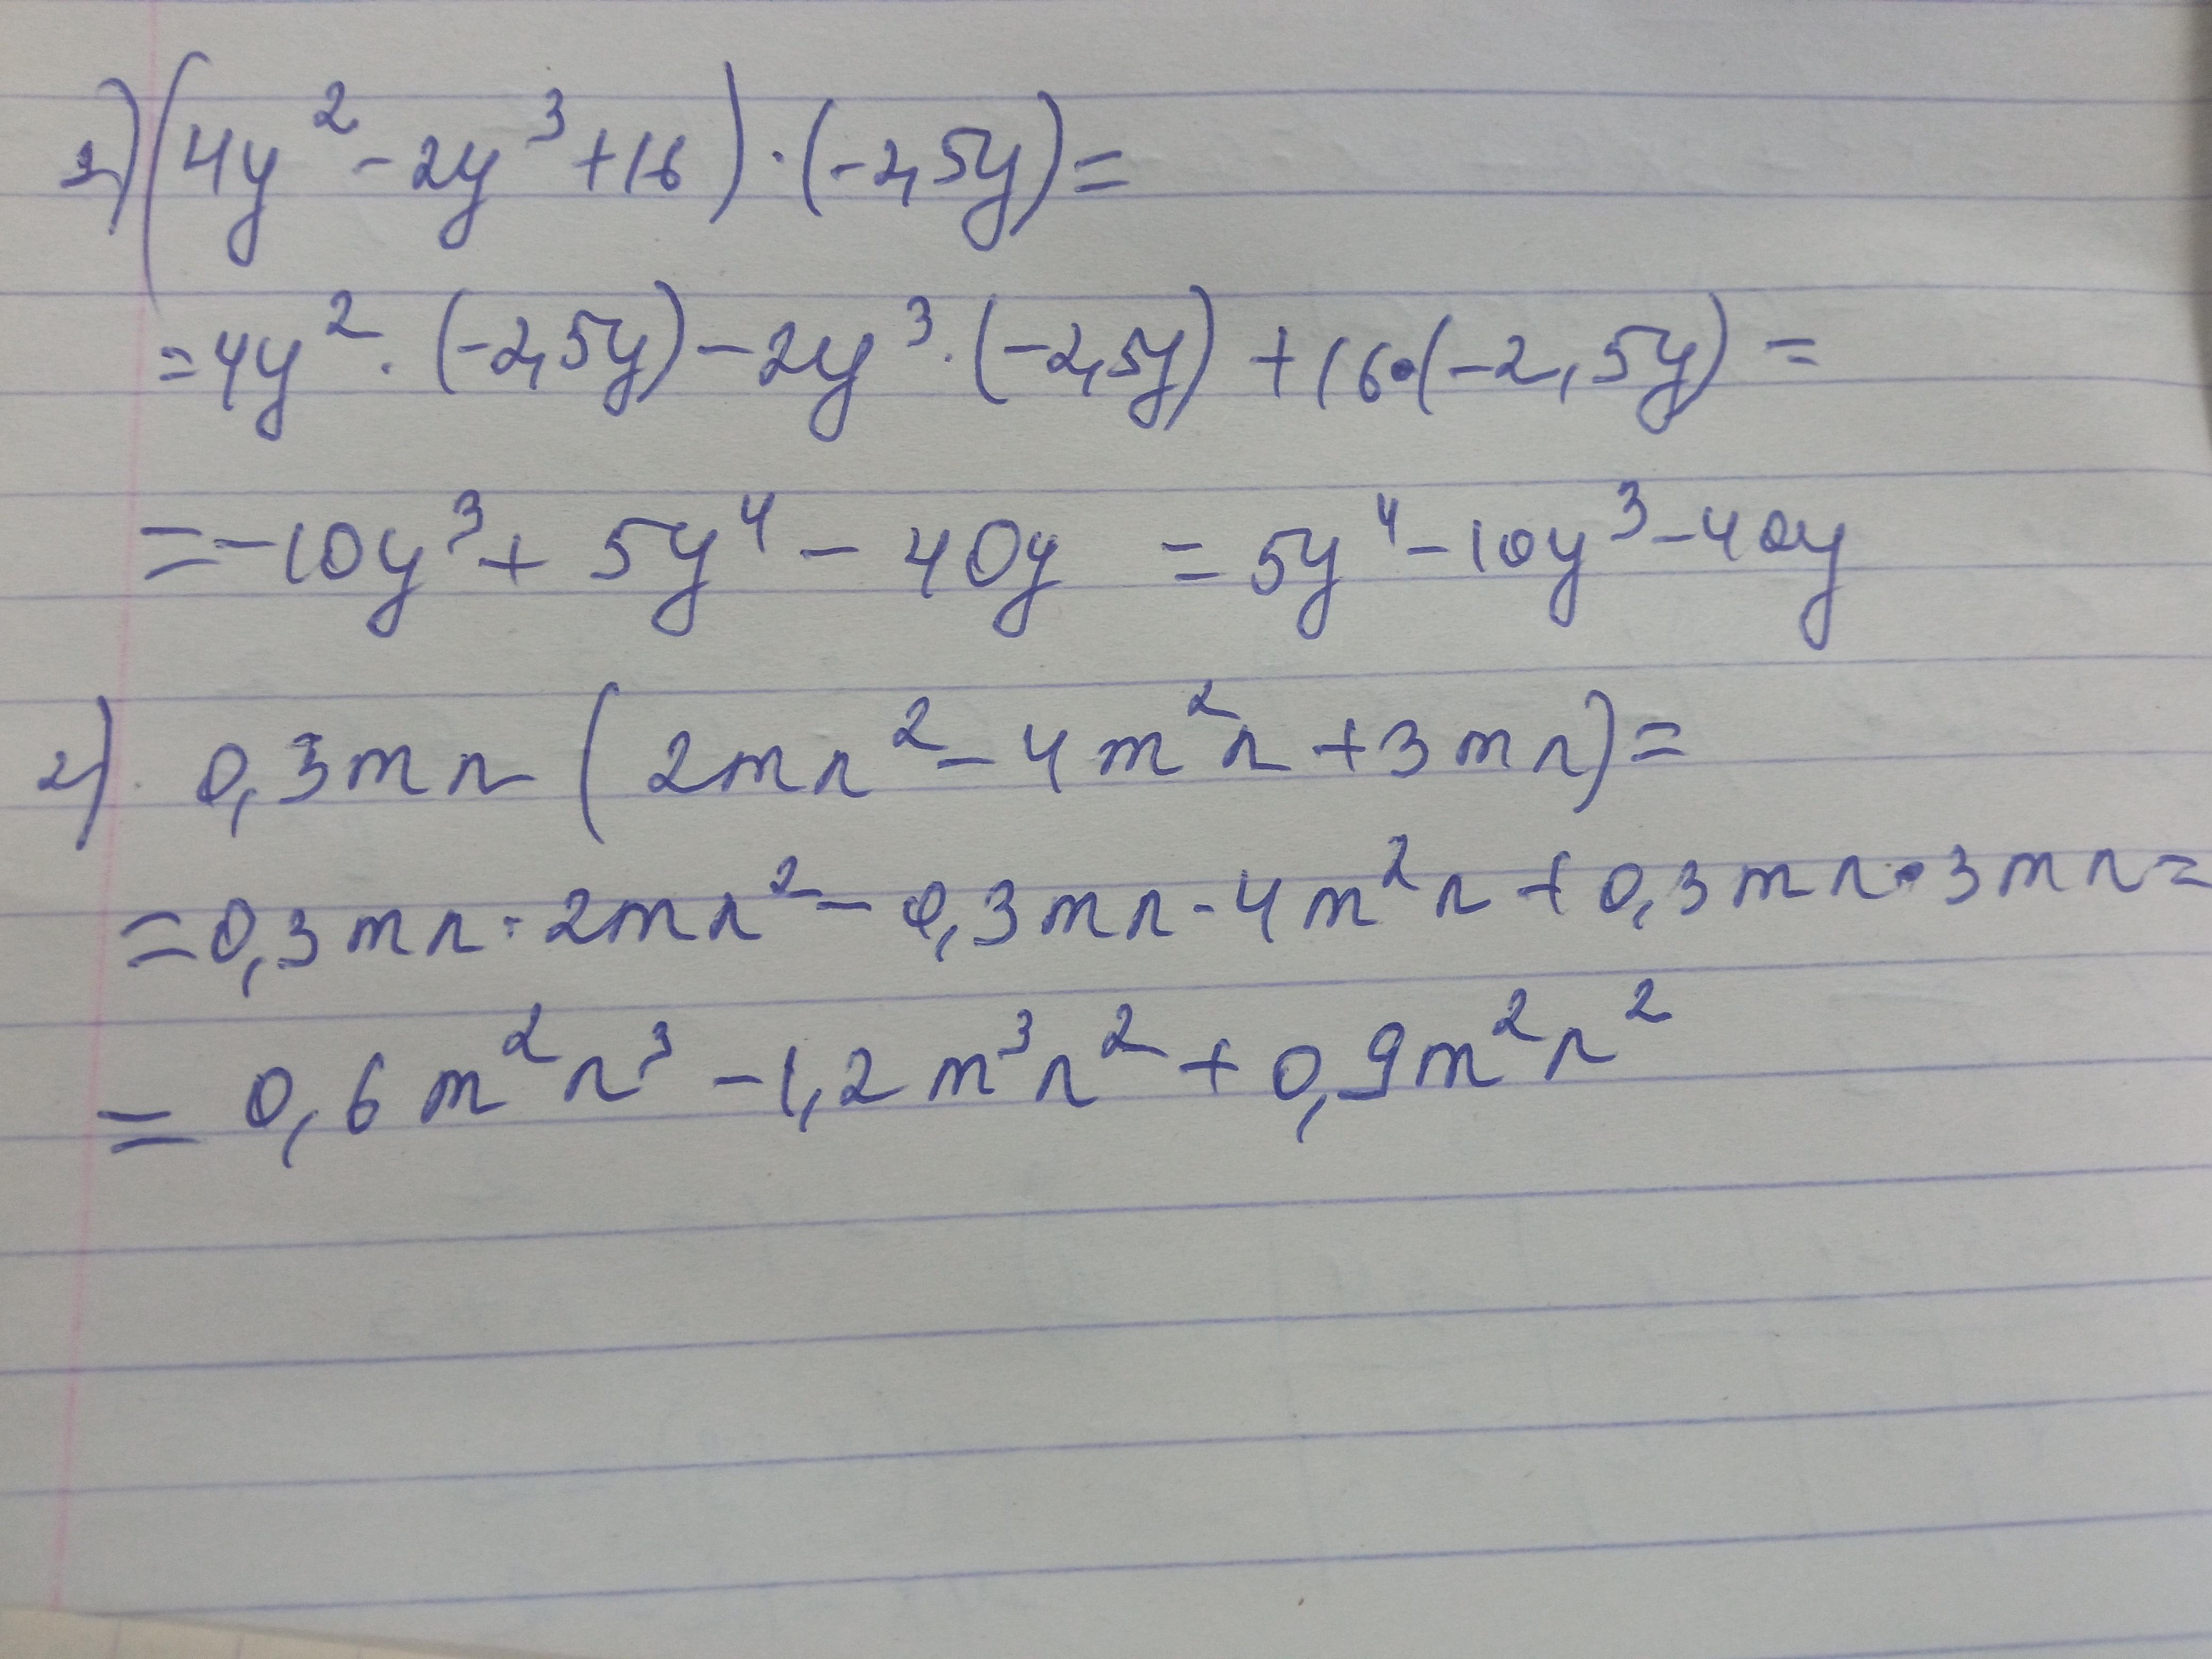 1) (4y² - 2y³ + 16) · (-2,5y) =
= 4y² · (-2,5y) - 2y³ · (-2,5y) + 16 · (-2,5y) =
= -10y³ + 5y⁴ - 40y = 5y⁴ - 10y³ - 40y
2) 0,3mn (2mn² - 4m²n + 3mn) =
= 0,3mn · 2mn² - 0,3mn · 4m²n + 0,3mn · 3mn =
= 0,6m²n³ - 1,2m³n² + 0,9m²n²